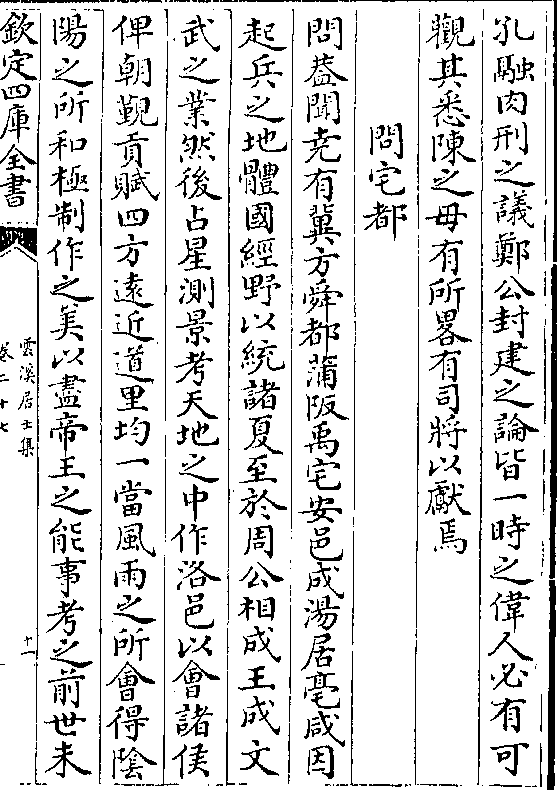 孔融肉刑之議鄭公封建之論皆一時之偉人必有可
觀其悉陳之毋有所畧有司將以獻焉
問宅都
問葢聞堯有冀方舜都蒲阪禹宅安邑成湯居亳咸因
起兵之地體國經野以統諸夏至於周公相成王成文
武之業然後占星測景考天地之中作洛邑以會諸侯
俾朝覲貢賦四方遠近道里均一當風雨之所會得陰
陽之所和極制作之美以盡帝王之能事考之前世未
欽定四庫全書
雲溪居士集
卷二十七
十一